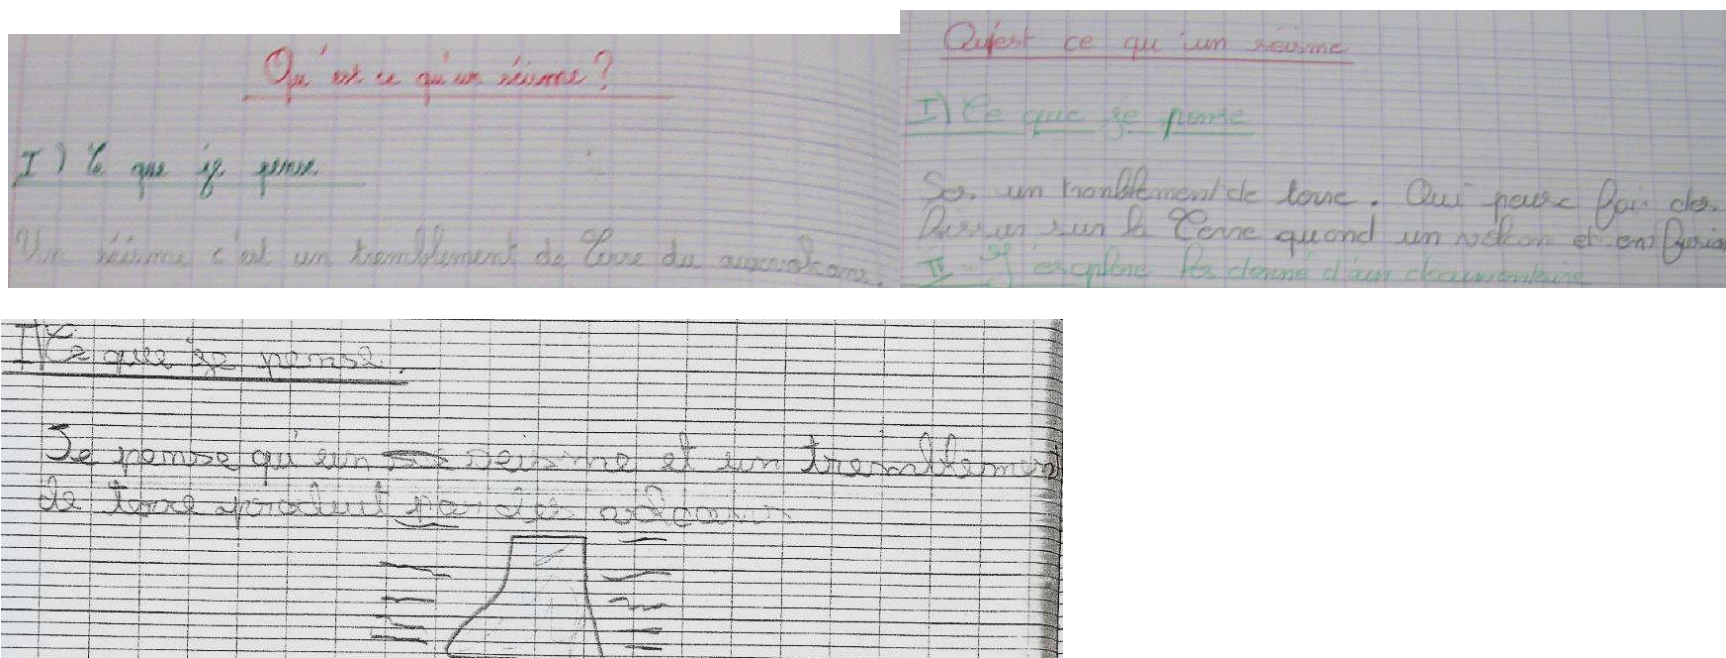 Qu'est ce qu'un séisme ?
I) Ce que je pense
Un séisme c'est un tremblement de Terre du
Qu'est ce qu'un séisme
I) Ce que je pense
un tremblement de terre. Qui peuve fair des
sur la Terre quand un volkan et en
II - J'explore les donné d'un documentaire
I) Ce que je pense.
Je pense qu'un seisme et un tremblement
de terre produit par des volcan